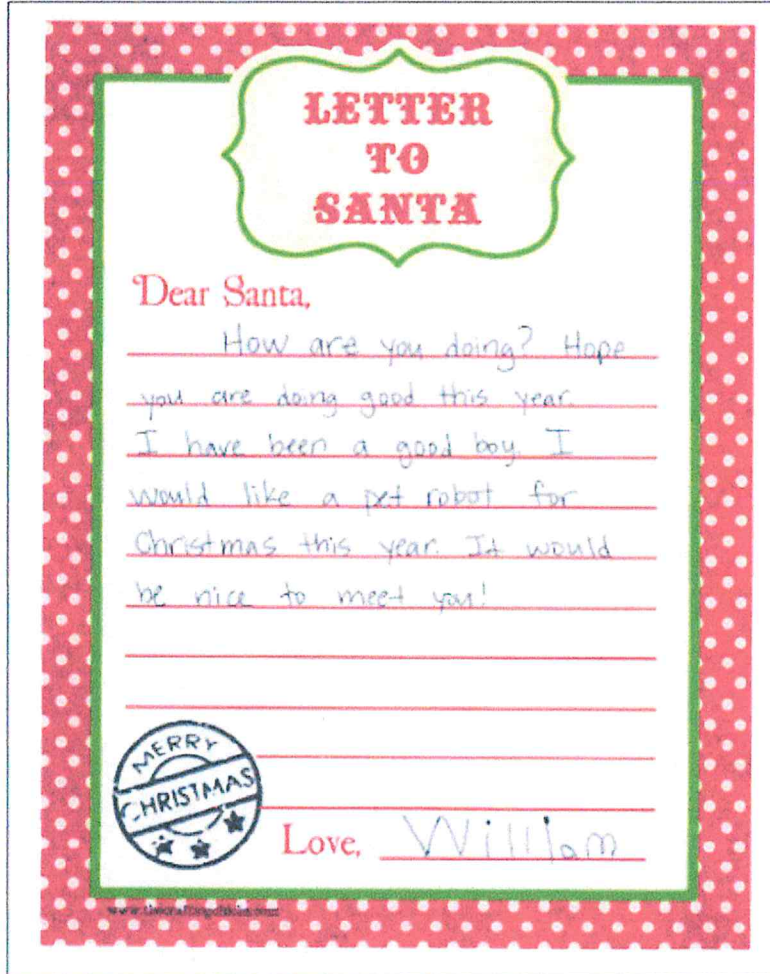 LETTER
TO
SANTA
Dear Santa,
How are you doing? Hope
you are doing good this year.
I have been a good boy. I
would like a pet robot for
Christmas this year. It would
be nice to meet you!
MERRY
CHRISTMAS
Love, William